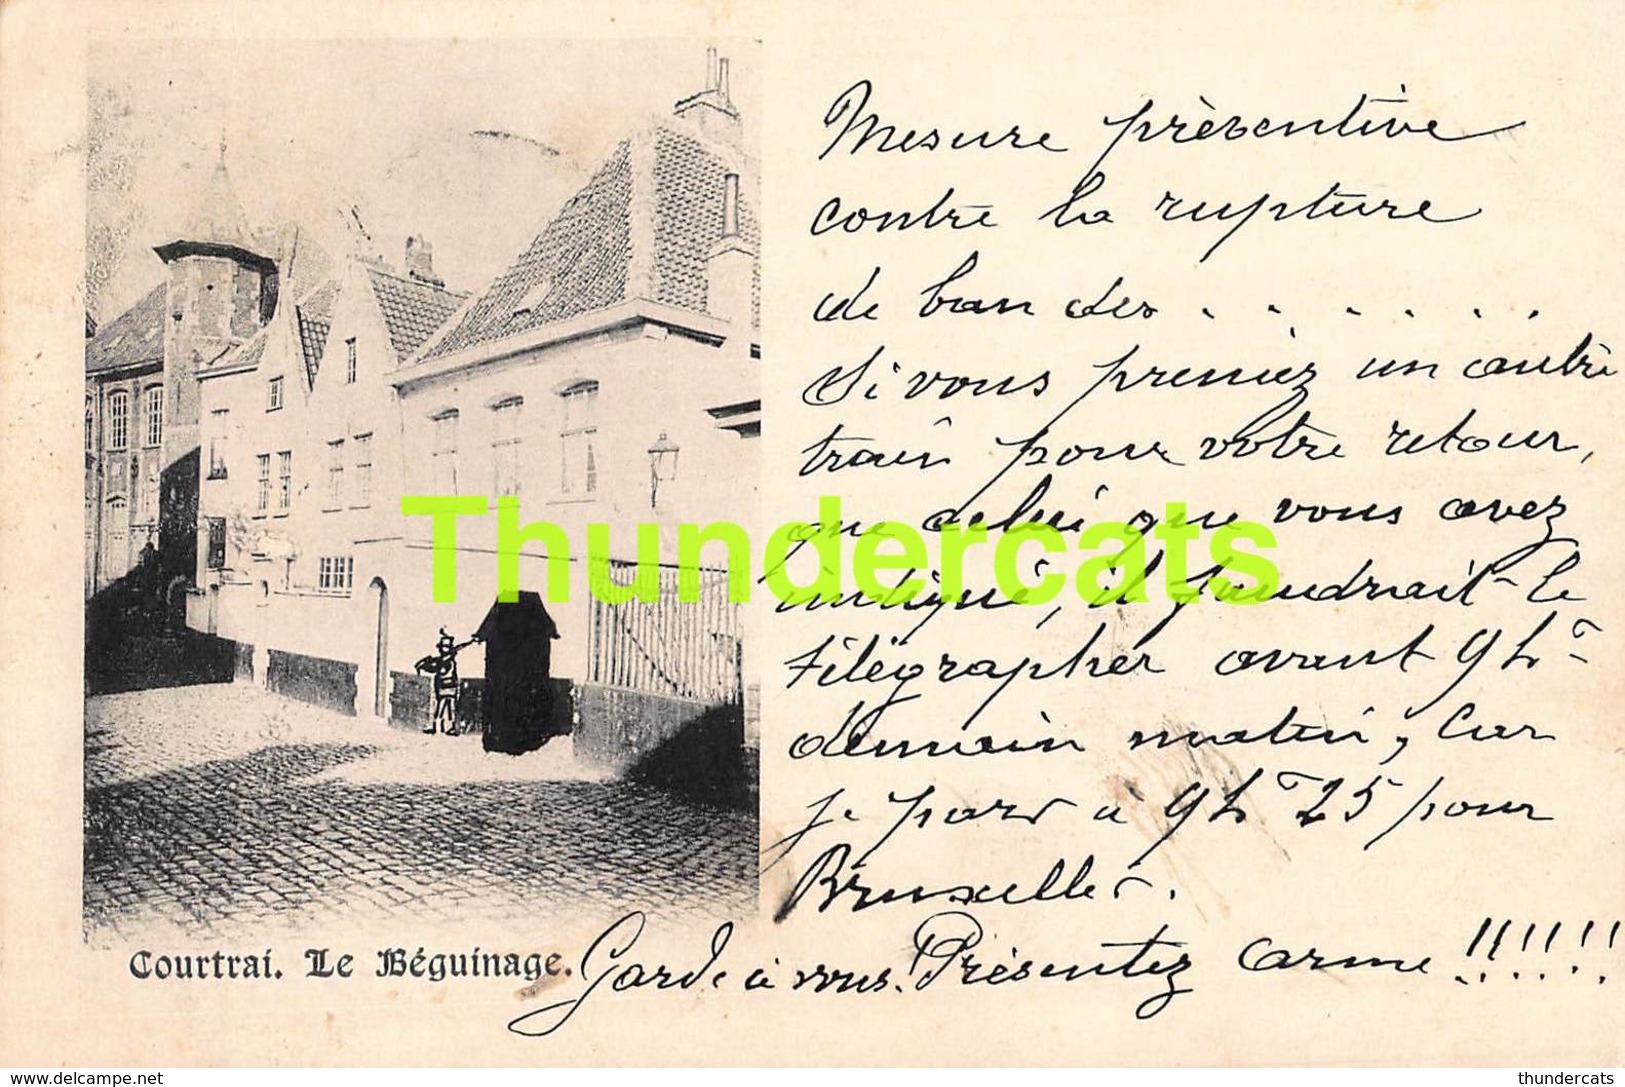 Mesure prèsentive
contre la rupture
de bandes . . . . . . .
Si vous preniez un autre
train pour votre retour,
que celui que vous avez
indiqué, il faudrait le
télégraphier avant 9h-
demain matin, car
je pars à 9h 25 pour
Bruxelles.
Garde à vous! Présentez arme !!!!!!
Courtrai. Le Béguinage.
Thundercats
www.delcampe.net
thundercats